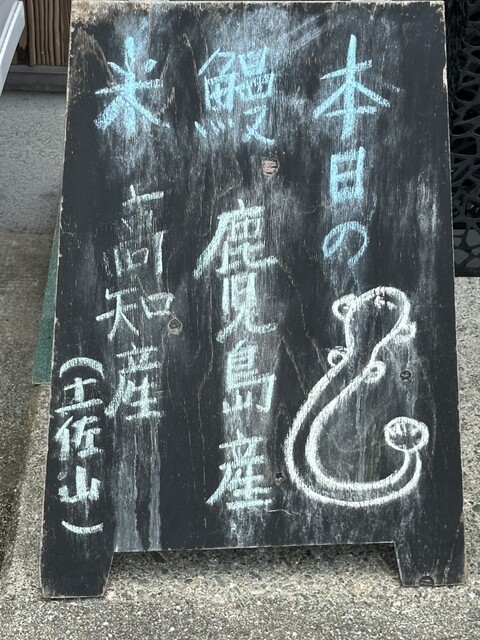 本日の
鰻 鹿児島産
米 高知産
（土佐山）